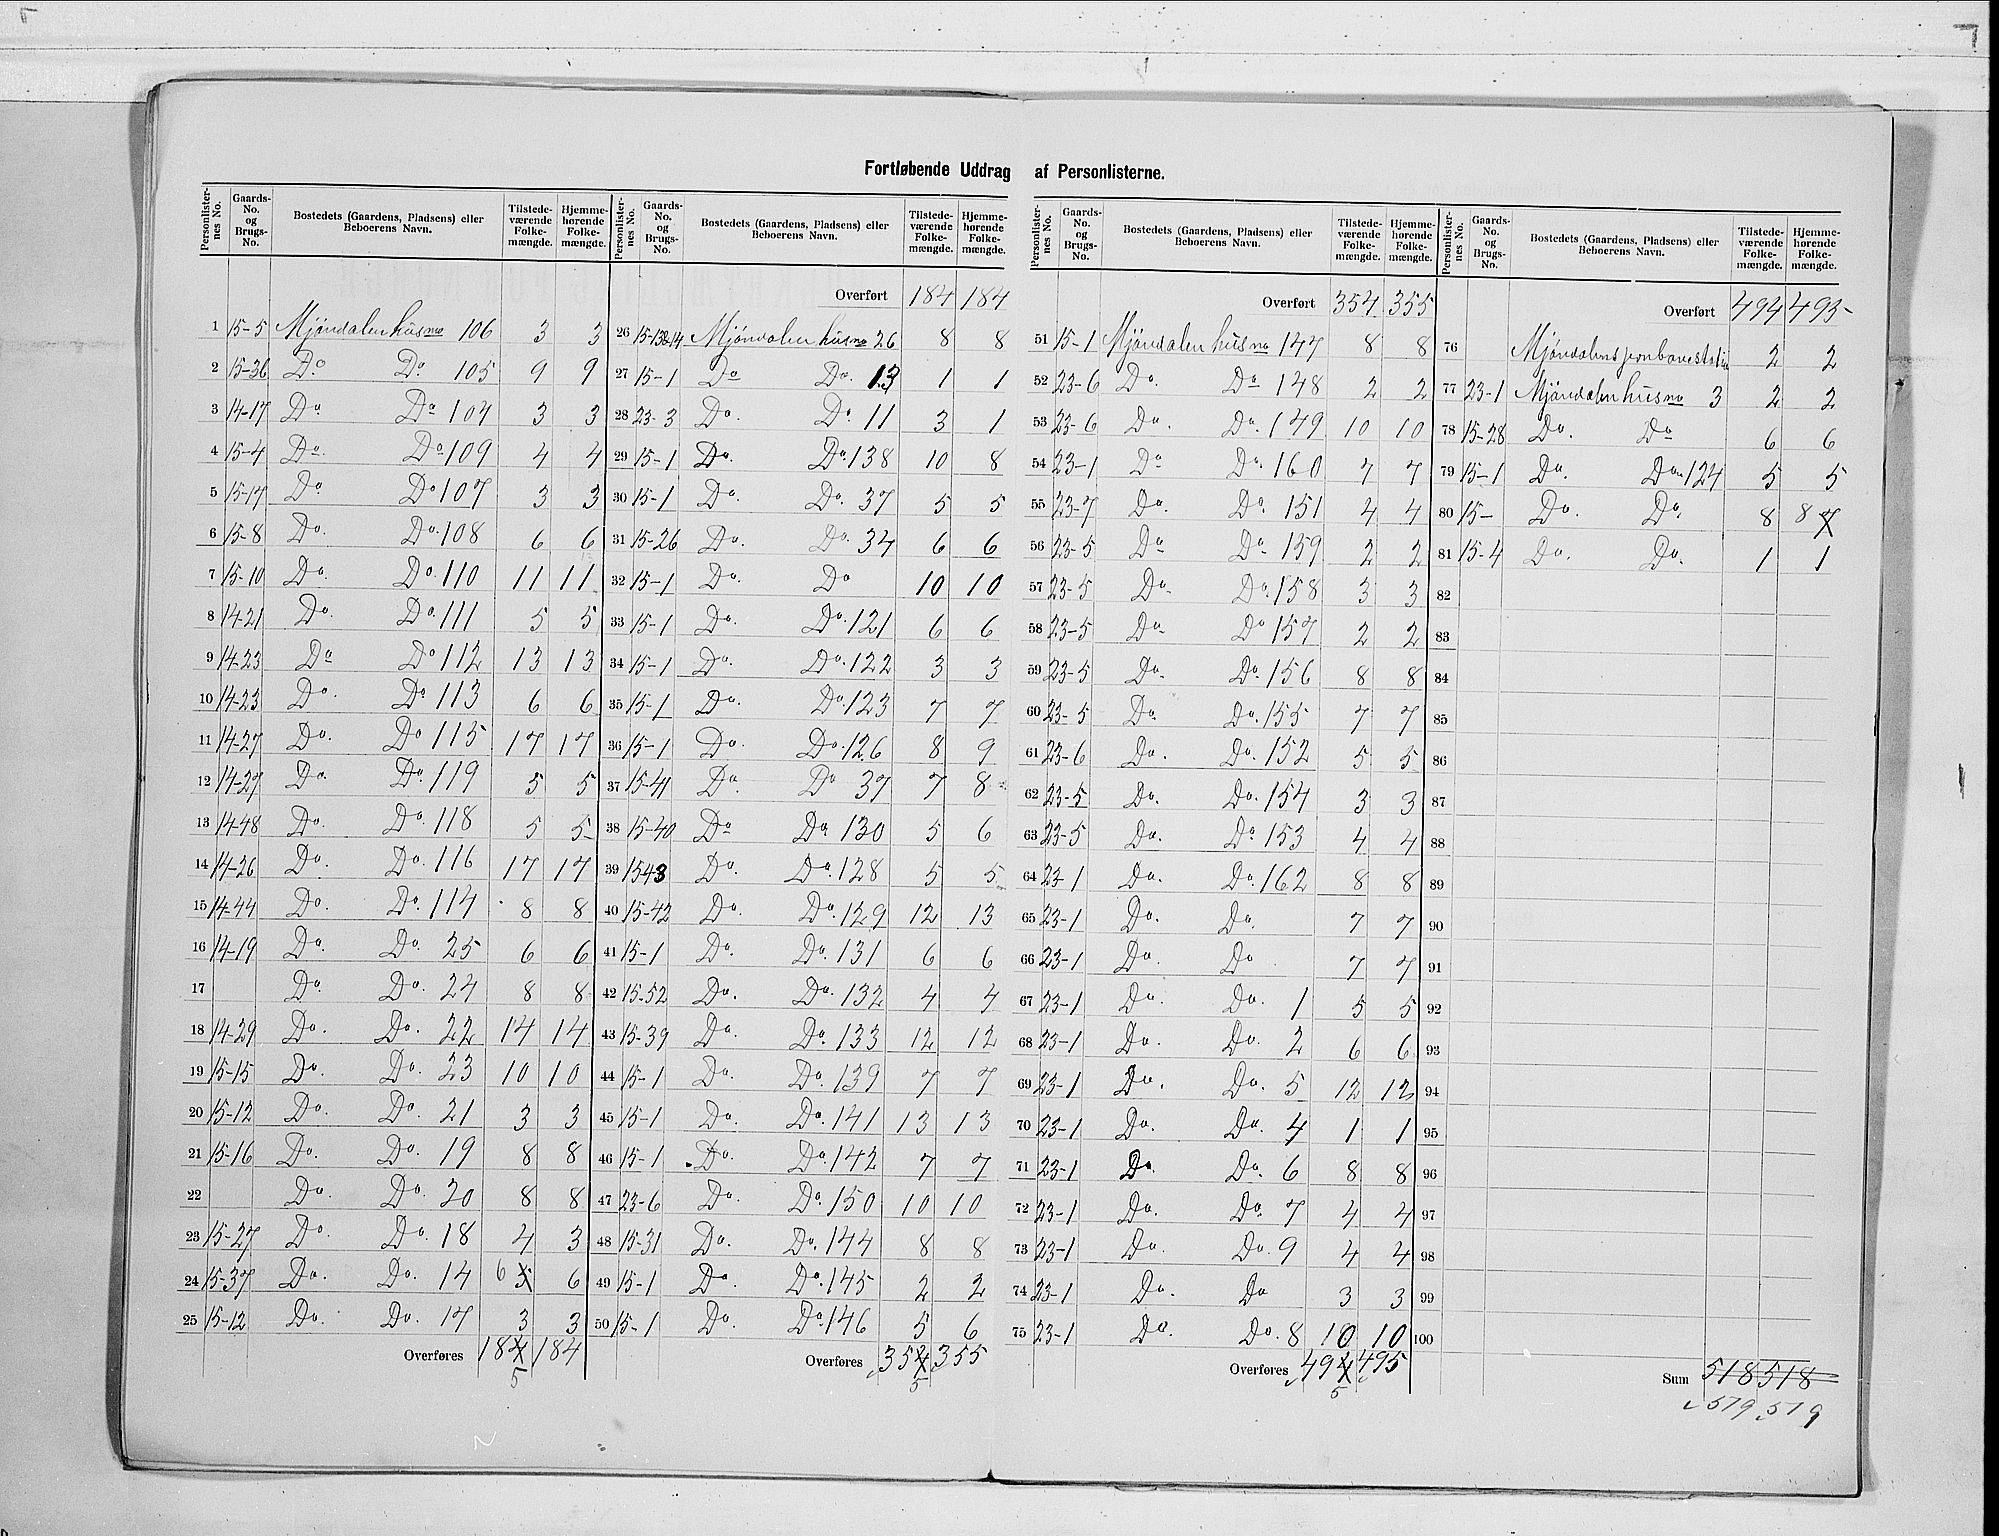 Fortløbende Uddrag af Personlisterne.
Personlisternes No. Gaards-No. og Brugs-No. Bostedets (Gaardens, Pladsens) eller Beboerens Navn. Tilstedeværende Folkemængde. Hjemmehørende Folkemængde.
1 15-5 Mjöndalen husno 106 3 3
2 15-36 Do Do 105 9 9
3 14-17 Do Do 104 3 3
4 15-4 Do. Do 109 4 4
5 15-17 Do Do 107 3 3
6 15-8 Do. Do. 108 6 6
7 15-10 Do. Do. 110 11 11
8 14-21 Do. Do. 111 5 5
9 14-23 Do Do 112 13 13
10 14-23 Do. Do 113 6 6
11 14-27 Do. Do 115 17 17
12 14-27 Do Do. 119 5 5
13 14-48 Do. Do. 118 5 5
14 14-26 Do. Do. 116 17 17
15 14-44 Do. Do. 114 8 8
16 14-19 Do. Do. 25 6 6
17 Do. Do. 24 8 8
18 14-29 Do. Do. 22 14 14
19 15-15 Do. Do. 23 10 10
20 15-12 Do. Do. 21 3 3
21 15-16 Do. Do. 19 8 8
22 Do. Do. 20 8 8
23 15-27 Do. Do. 18 4 3
24 15-37 Do. Do. 14 6 5 6
25 15-12 Do. Do. 17 3 3
Overføres 184 184
5
Personlisternes No. Gaards-No. og Brugs-No. Bostedets (Gaardens, Pladsens) eller Beboerens Navn. Tilstedeværende Folkemængde. Hjemmehørende Folkemængde.
Overført 184 184
26 15-13&14 Mjöndalen husno 26 8 8
27 15-1 Do Do. 13 1 1
28 23-3 Do. Do. 11 3 1
29 15-1 Do. Do. 138 10 8
30 15-1 Do. Do. 37 5 5
31 15-26 Do. Do. 34 6 6
32 15-1 Do. Do 10 10
33 15-1 Do. Do. 121 6 6
34 15-1 Do. Do. 122 3 3
35 15-1 Do. Do. 123 7 7
36 15-1 Do. Do. 126 8 9
37 15-41 Do. Do 37 7 8
38 15-40 Do Do. 130 5 6
39 15 43 Do. Do. 128 5 5
40 15-42 Do. Do. 129 12 13
41 15-1 Do. Do. 131 6 6
42 15-52 Do. Do. 132 4 4
43 15-39 Do. Do. 133 12 12
44 15-1 Do. Do. 139 7 7
45 15-1 Do. Do. 141 13 13
46 15-1 Do. Do. 142 7 7
47 23-6 Do. Do. 150 10 10
48 15-31 Do. Do. 144 8 8
49 15-1 Do. Do. 145 2 2
50 15-1 Do. Do. 146 5 6
Overføres 354 355
5
Personlisternes No. Gaards-No. og Brugs-No. Bostedets (Gaardens, Pladsens) eller Beboerens Navn. Tilstedeværende Folkemængde. Hjemmehørende Folkemængde.
Overført 354 355
51 15-1 Mjöndalen husno 147 8 8
52 23-6 Do. Do 148 2 2
53 23-6 Do. Do. 149 10 10
54 23-1 Do Do. 160 7 7
55 23-7 Do. Do. 151 4 4
56 23-5 Do Do 159 2 2
57 23-5 Do. Do. 158 3 3
58 23-5 Do. Do 157 2 2
59 23-5 Do. Do. 156 8 8
60 23-5 Do. Do. 155 7 7
61 23-6 Do. Do. 152 5 5
62 23-5 Do. Do. 154 3 3
63 23-5 Do. Do 153 4 4
64 23-1 Do. Do. 162 8 8
65 23-1 Do. Do. 7 7
66 23-1 Do. Do 7 7
67 23-1 Do. Do. 1 5 5
68 23-1 Do. Do. 2 6 6
69 23-1 Do. Do. 5 12 12
70 23-1 Do. Do. 4 1 1
71 23-1 Do. Do. 6 8 8
72 23-1 Do. Do. 7 4 4
73 23-1 Do. Do. 9 4 4
74 23-1 Do. Do 3 3
75 23-1 Do. Do. 8 10 10
Overføres 494 495
5
Personlisternes No. Gaards-No. og Brugs-No. Bostedets (Gaardens, Pladsens) eller Beboerens Navn. Tilstedeværende Folkemængde. Hjemmehørende Folkemængde.
Overført 494 495
76 2 2
77 23-1 Mjöndalen husno 3 2 2
78 15-28 Do. Do 6 6
79 15-1 Do. Do. 124 5 5
80 15- Do. Do. 8 8 7
81 15-4 Do. Do. 1 1
82
83
84
85
86
87
88
89
90
91
92
93
94
95
96
97
98
99
100
Sum 518 518
519 519